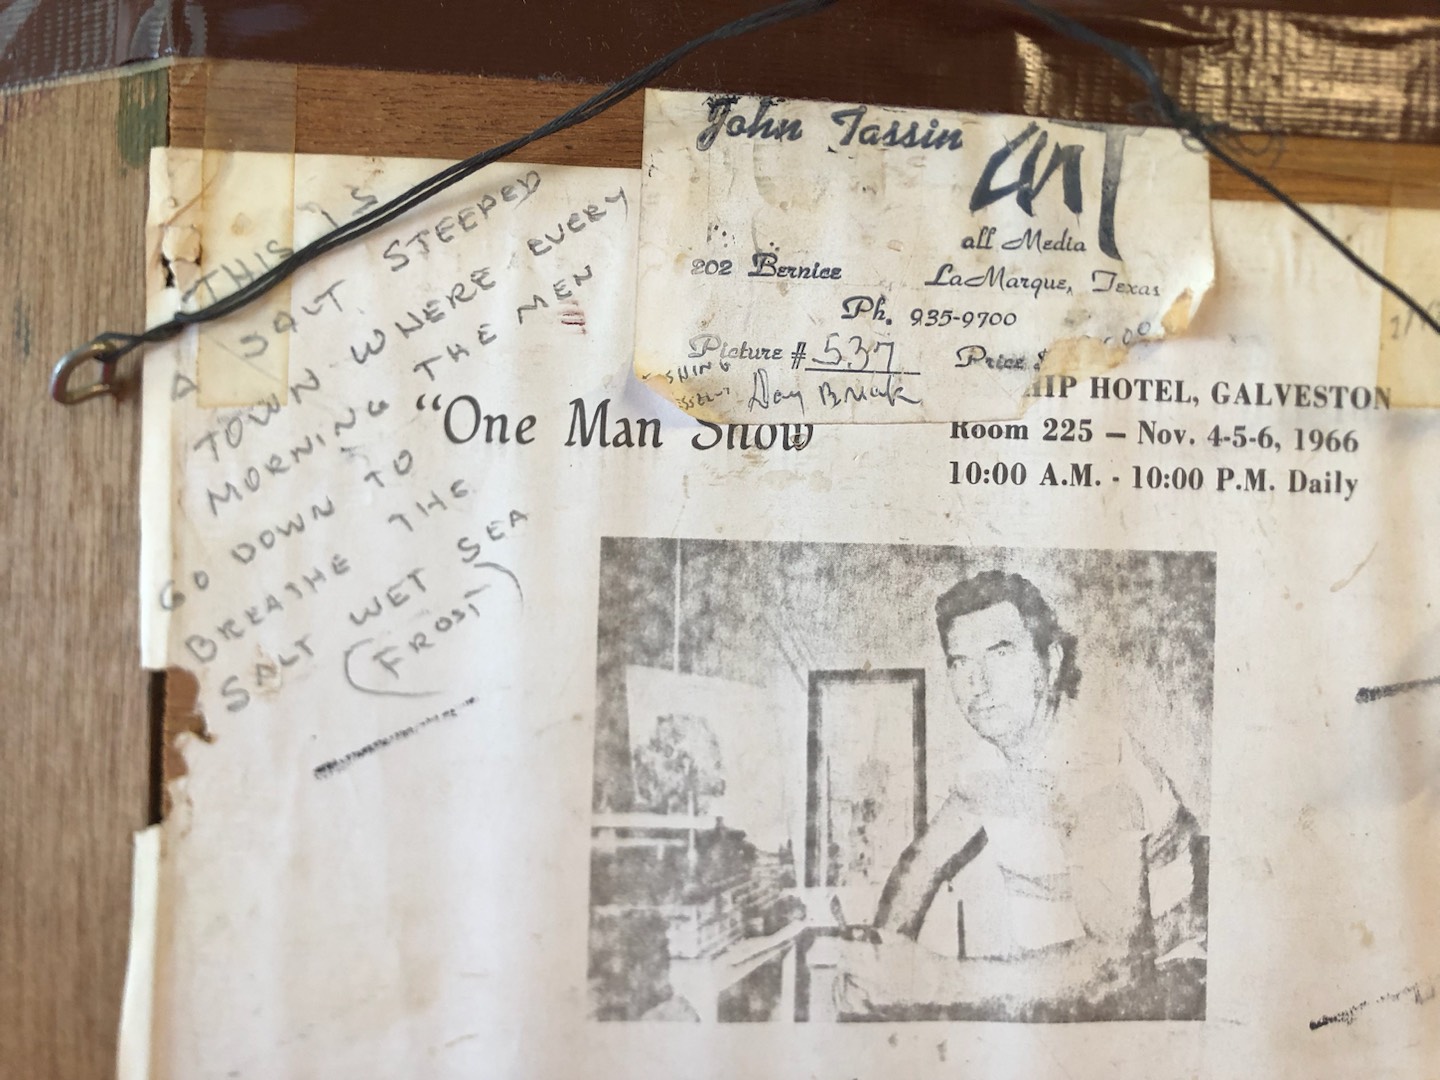 John Tassin ART
all Media
202 Bernice LaMarque, Texas
Ph. 935-9700
Picture # 537 Price $
Day Break
THIS IS
A SALT STEEPED
TOWN WHERE EVERY
MORNING THE MEN
GO DOWN TO
BREATHE THE
SALT WET SEA
(FROST)
"One Man Show HOTEL, GALVESTON
Room 225 – Nov. 4-5-6, 1966
10:00 A.M. - 10:00 P.M. Daily